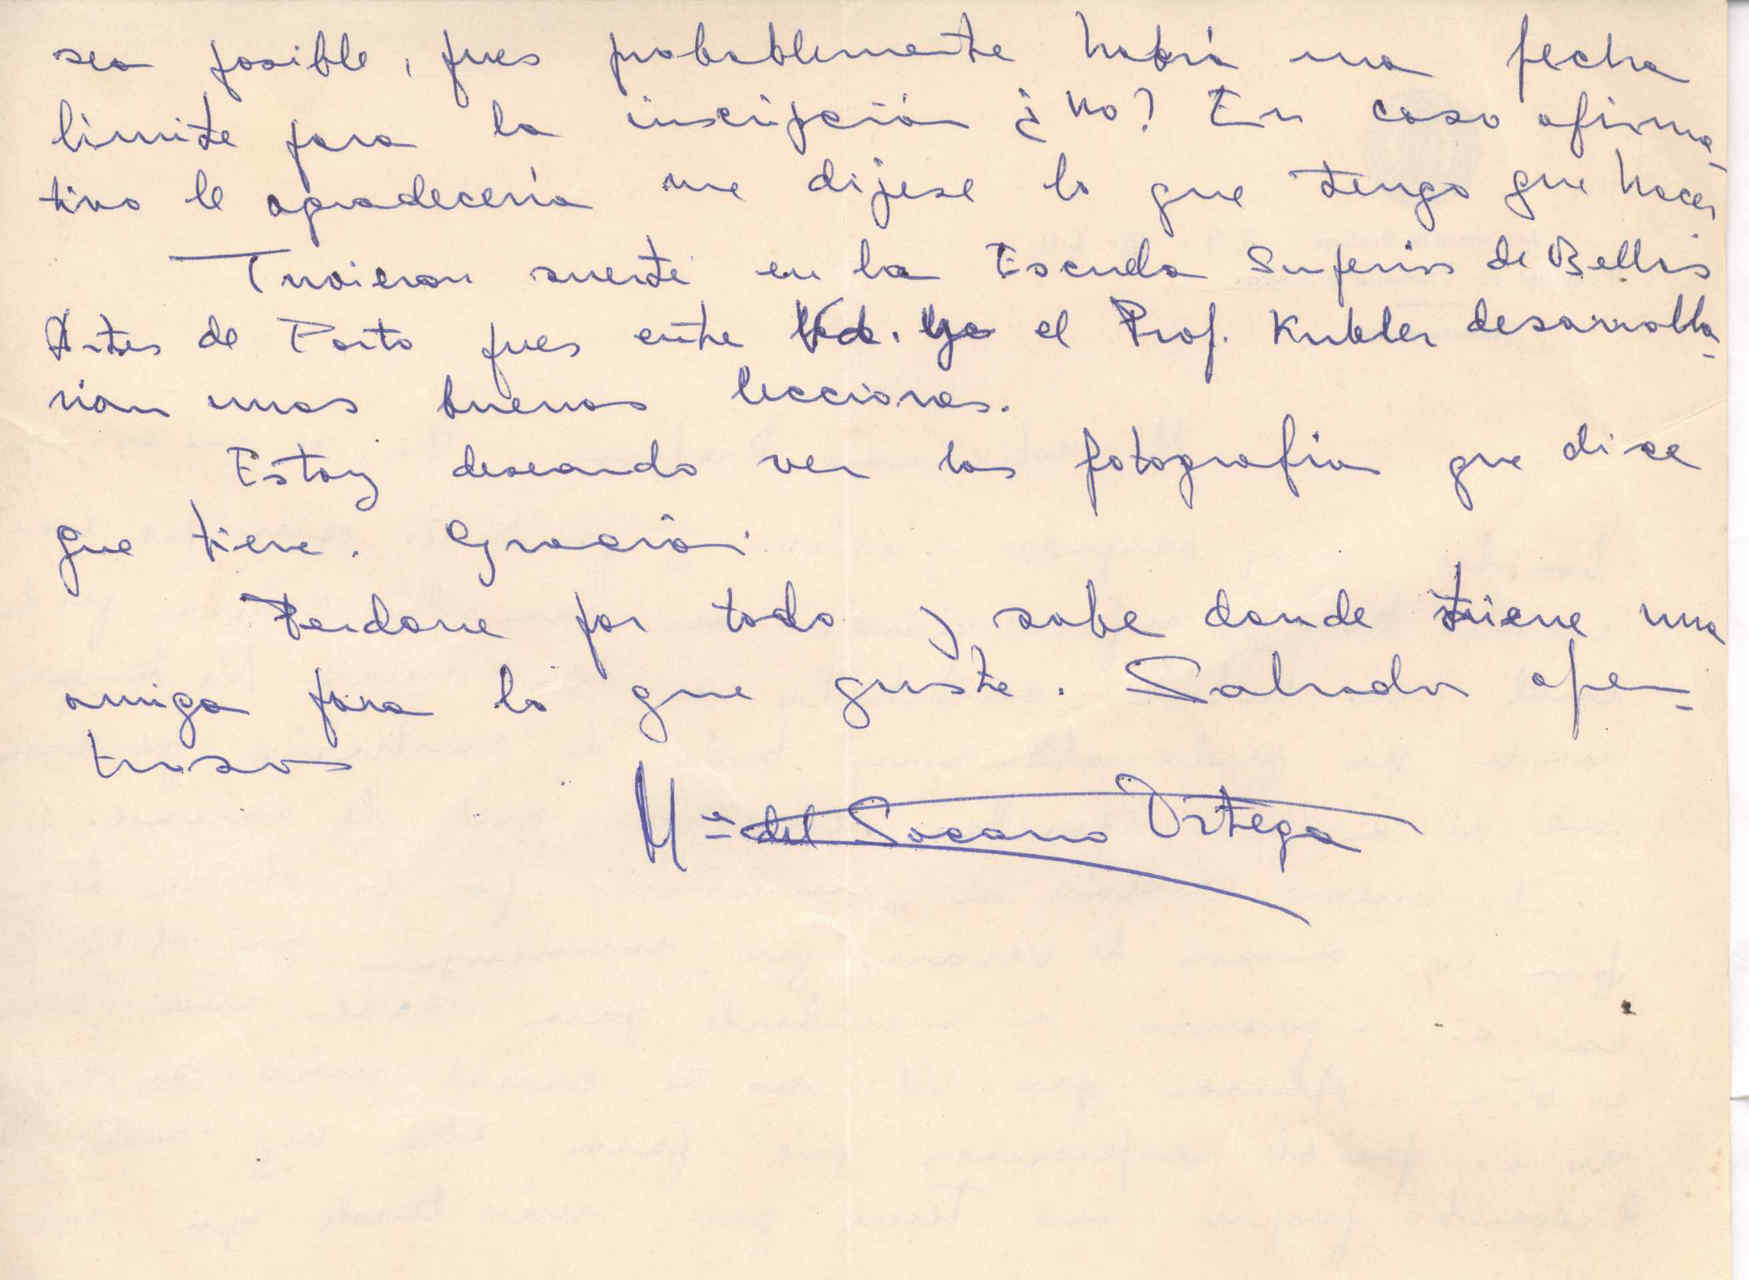 sea posible, pues probablemente habrá una fecha
limite para la inscripción ¿no? En caso afirma-
tivo le agradecería me dijese lo que tengo que hacer
Tuvieron suerte en la Escuela Superior de Bellas
Artes de Porto pues entre Vd. y el Prof. Kubler desarrolla-
rían unas buenas lecciones.
Estoy deseando ver las fotografías que dice
que tiene. Gracias.
Perdone por todo y sabe donde tiene una
amiga para lo que guste. Saludos afec-
tuosos
Mª del Socorro Ortega